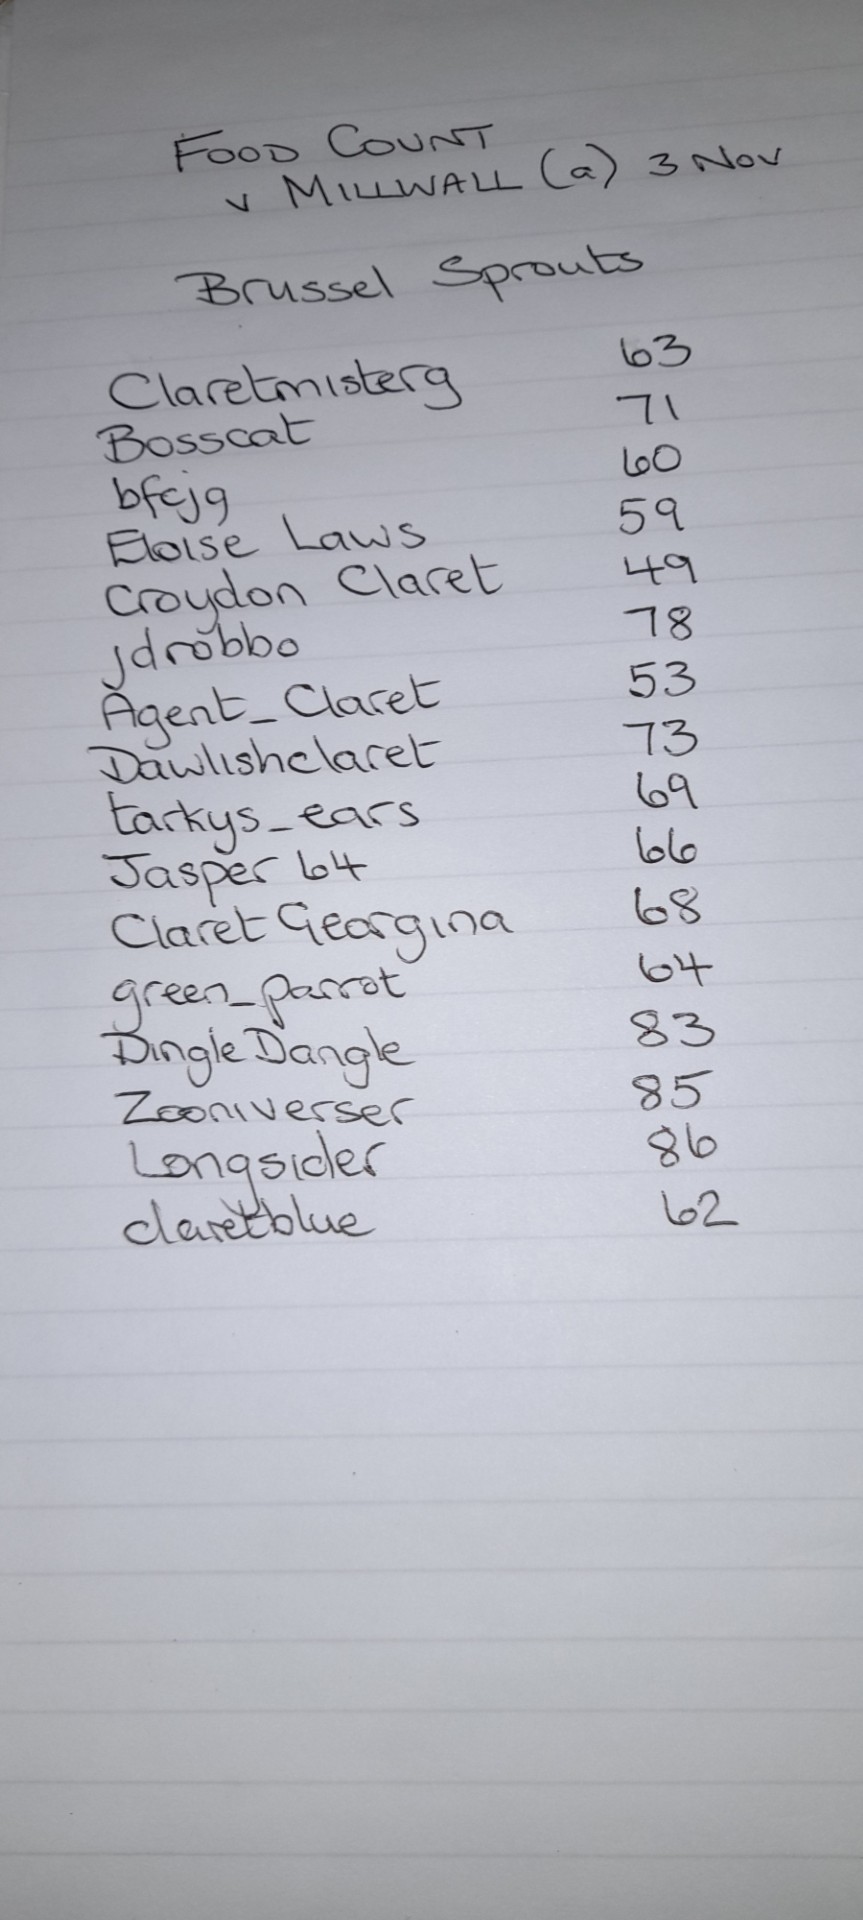 FOOD COUNT
v MILLWALL (a) 3 Nov
Brussel Sprouts
Claretmisterg 63
Bosscat 71
bfcjg 60
Eloise Laws 59
Croydon Claret 49
jdrobbo 78
Agent_Claret 53
Dawlishclaret 73
tarkys_ears 69
Jasper 64 66
Claret Georgina 68
green_parrot 64
Dingle Dangle 83
Zooniverser 85
Longsider 86
claretblue 62